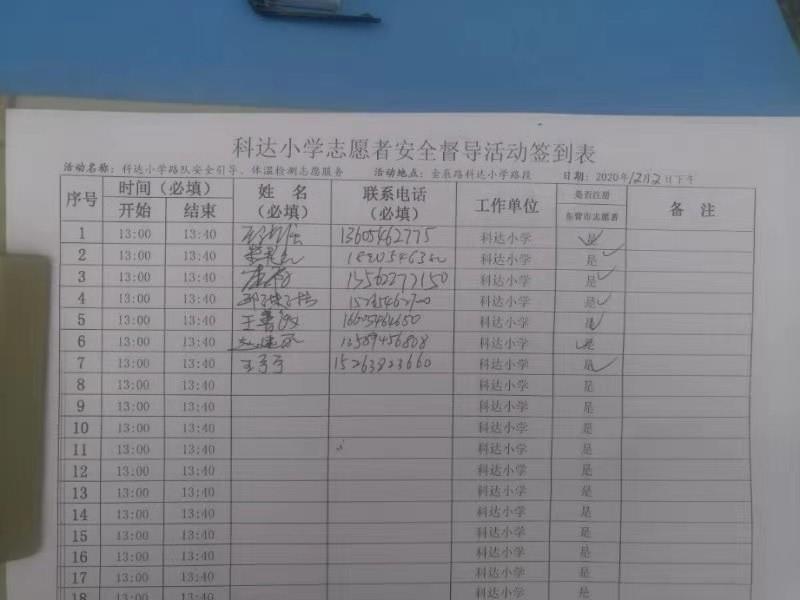 科达小学志愿者安全督导活动签到表
活动名称：科达小学路队安全引导、体温检测志愿服务 活动地点：金辰路科达小学路段 日期：2020年12月2日下午
序号 时间（必填） 姓 名（必填） 联系电话（必填） 工作单位 是否注册东营市志愿者 备 注
开始 结束
1 13:00 13:40 13605462775 科达小学 是
2 13:00 13:40 科达小学 是
3 13:00 13:40 科达小学 是
4 13:00 13:40 科达小学 是
5 13:00 13:40 科达小学 是
6 13:00 13:40 科达小学 是
7 13:00 13:40 15263823660 科达小学 是
8 13:00 13:40 科达小学 是
9 13:00 13:40 科达小学 是
10 13:00 13:40 科达小学 是
11 13:00 13:40 科达小学 是
12 13:00 13:40 科达小学 是
13 13:00 13:40 科达小学 是
14 13:00 13:40 科达小学 是
15 13:00 13:40 科达小学 是
16 13:00 13:40 科达小学 是
17 13:00 13:40 科达小学 是
18 13:00 13:40 科达小学 是